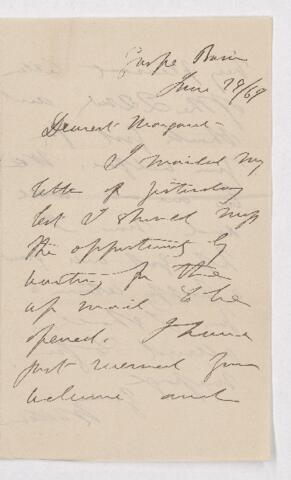 Gaspé Basin
June 29/69
Dearest Margaret
I mailed my
letter of yesterday
lest I should miss
the opportunity by
waiting for the
up mail to be
opened. I have
just received your
welcome and